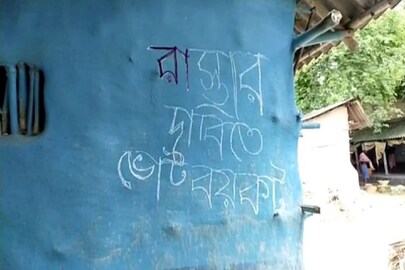 রাস্তার
দাবিতে
ভোট বয়কট